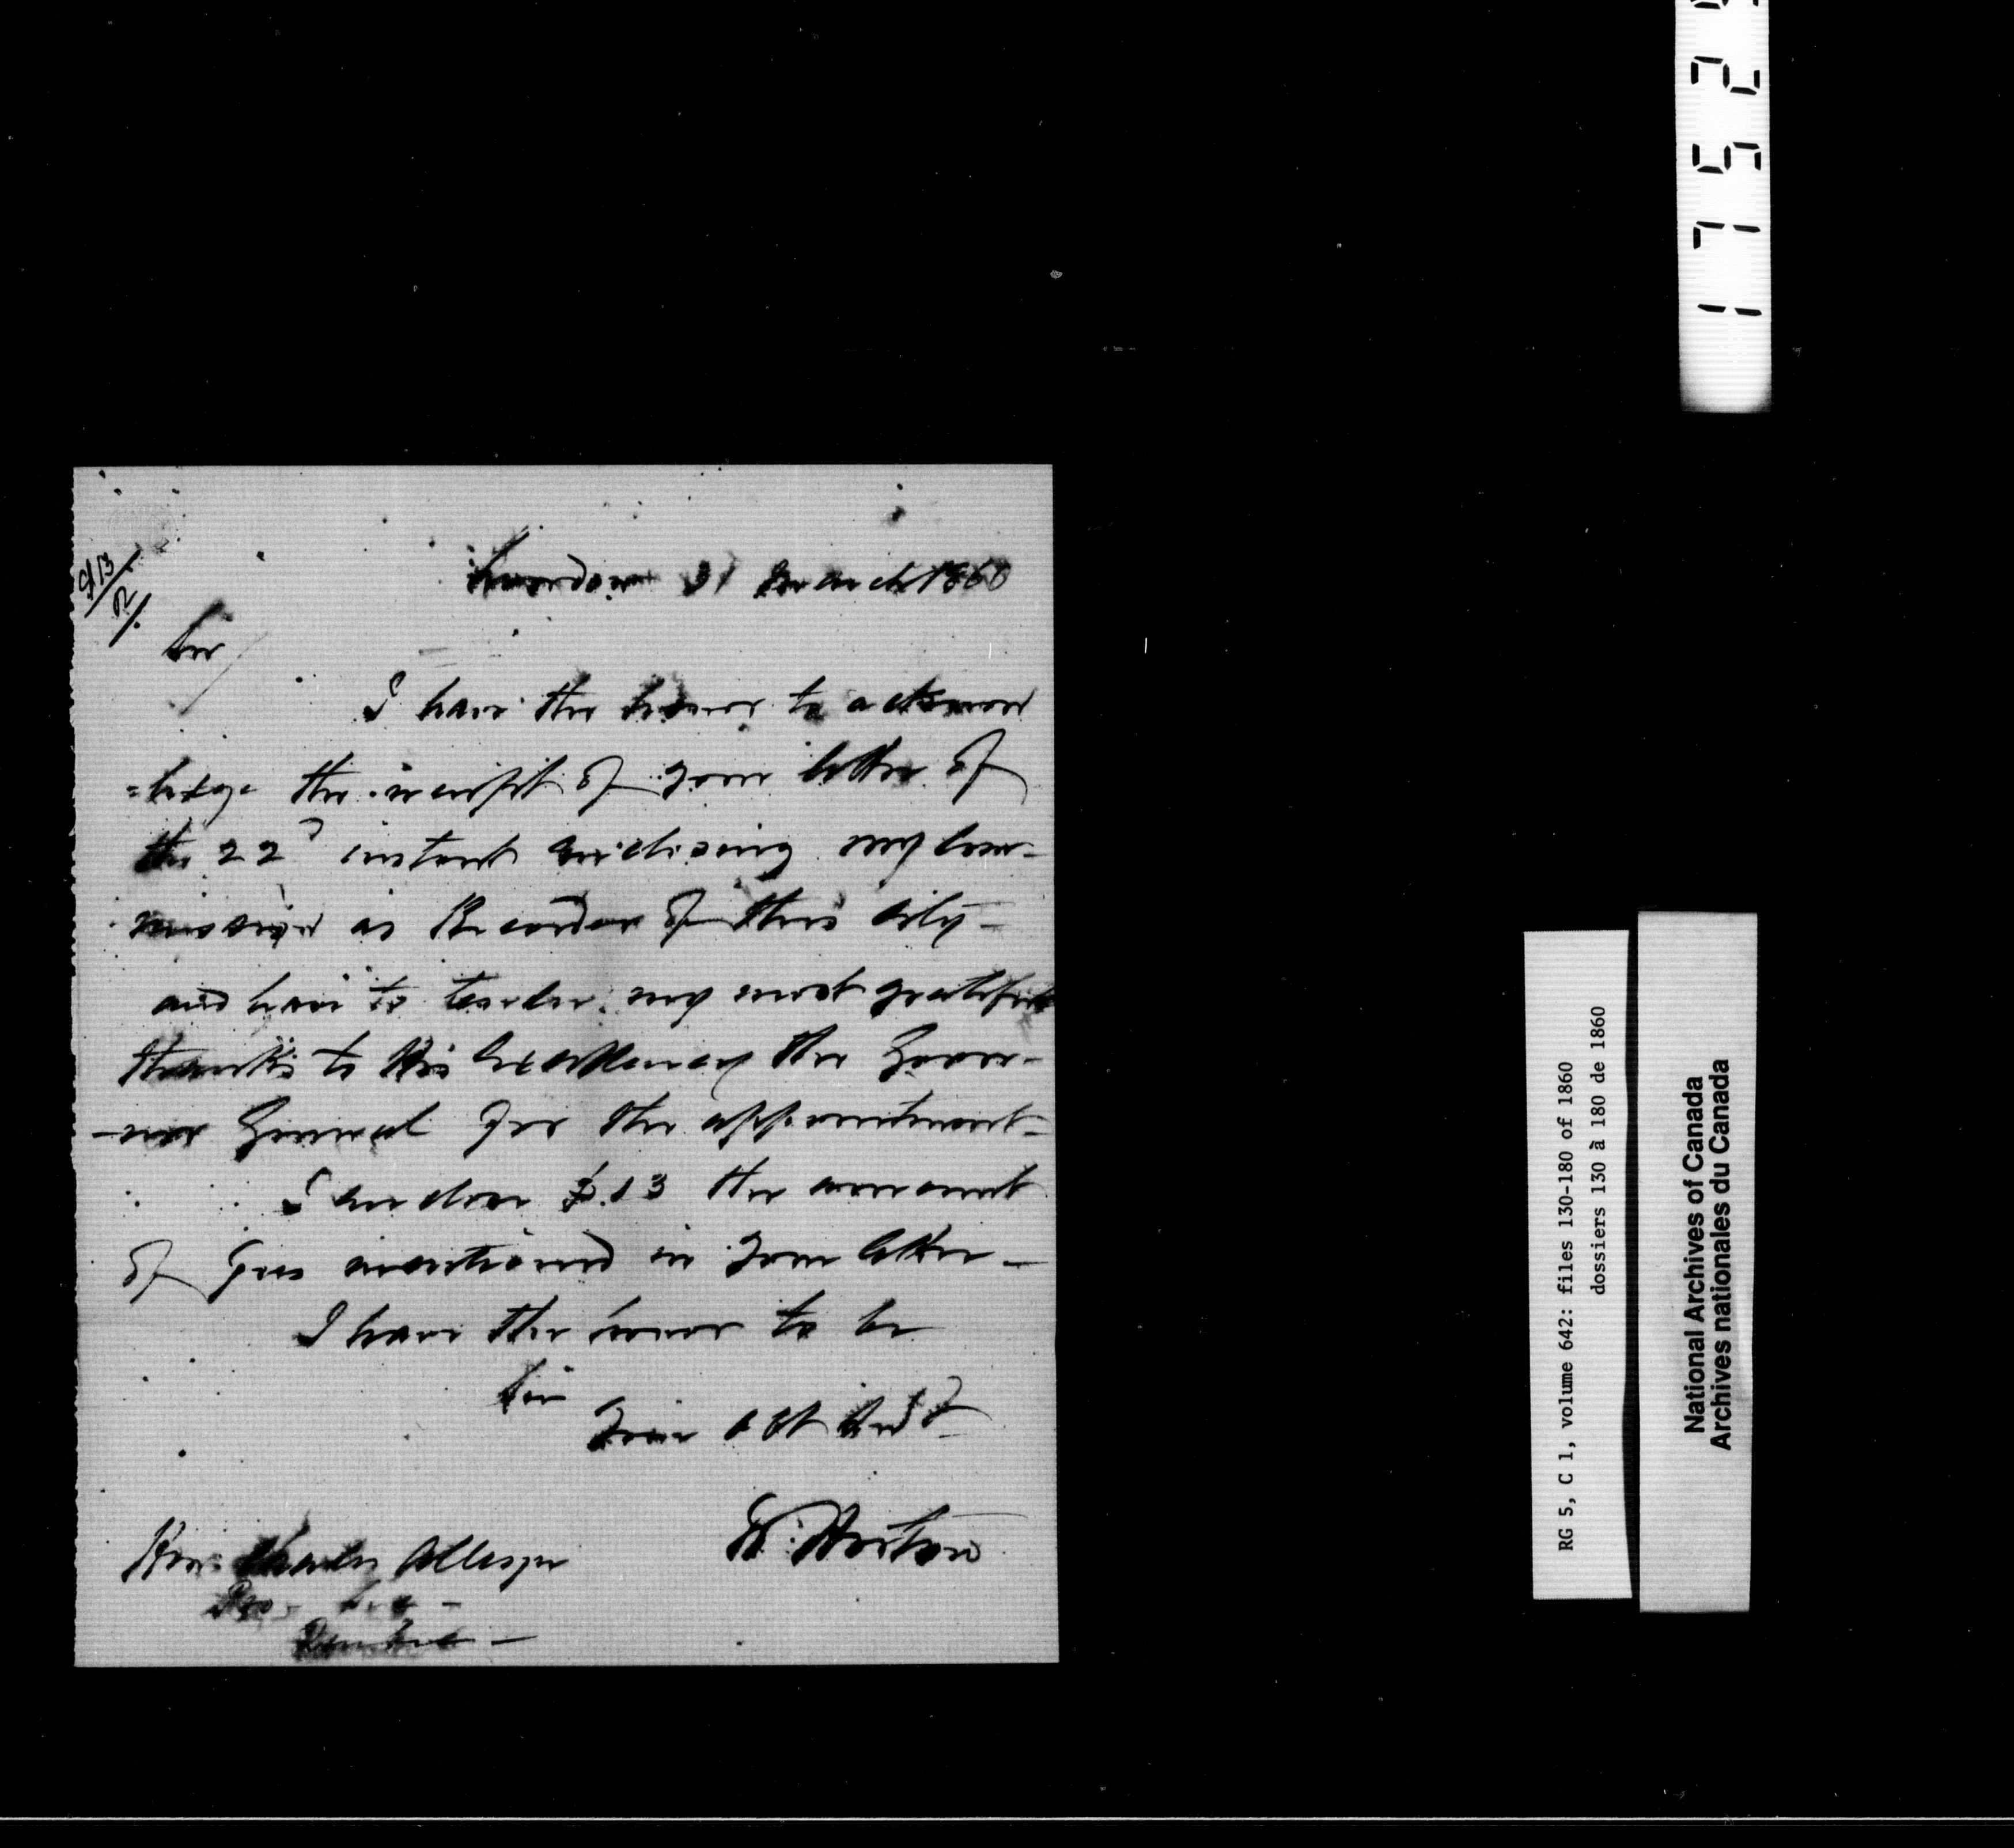 London 31 March 1860
Sir
I have the honor to acknow
=ledge the receipt of your letter of
the 22d instant enclosing my Com-
mission as Recorder of this City-
and have to tender my most grateful
thanks to His Excellency the Gover-
-nor General for the appointment-
I enclose $.13 the amount
of fees mentioned in your letter-
I have the honor to be
Sir
Your obt Servt
W. Horton
Hon: Charles Alleyn
Pro- Sec -
Quebec -
1752
RG 5, C 1, volume 642: files 130-180 of 1860
dossiers 130 à 180 de 1860
National Archives of Canada
Archives nationales du Canada